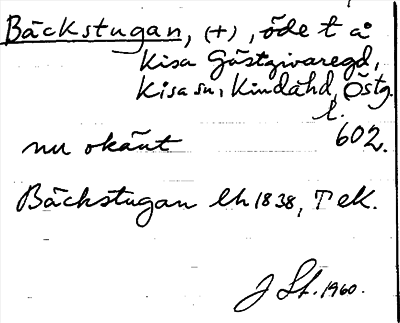 Bäckstugan, (+), öde t å
Kisa Gästgivaregd,
Kisa sn, Kinda hd, Östg.
l.
602.
nu okänt
Bäckstugan lh 1838, T eK.
J St. 1960.